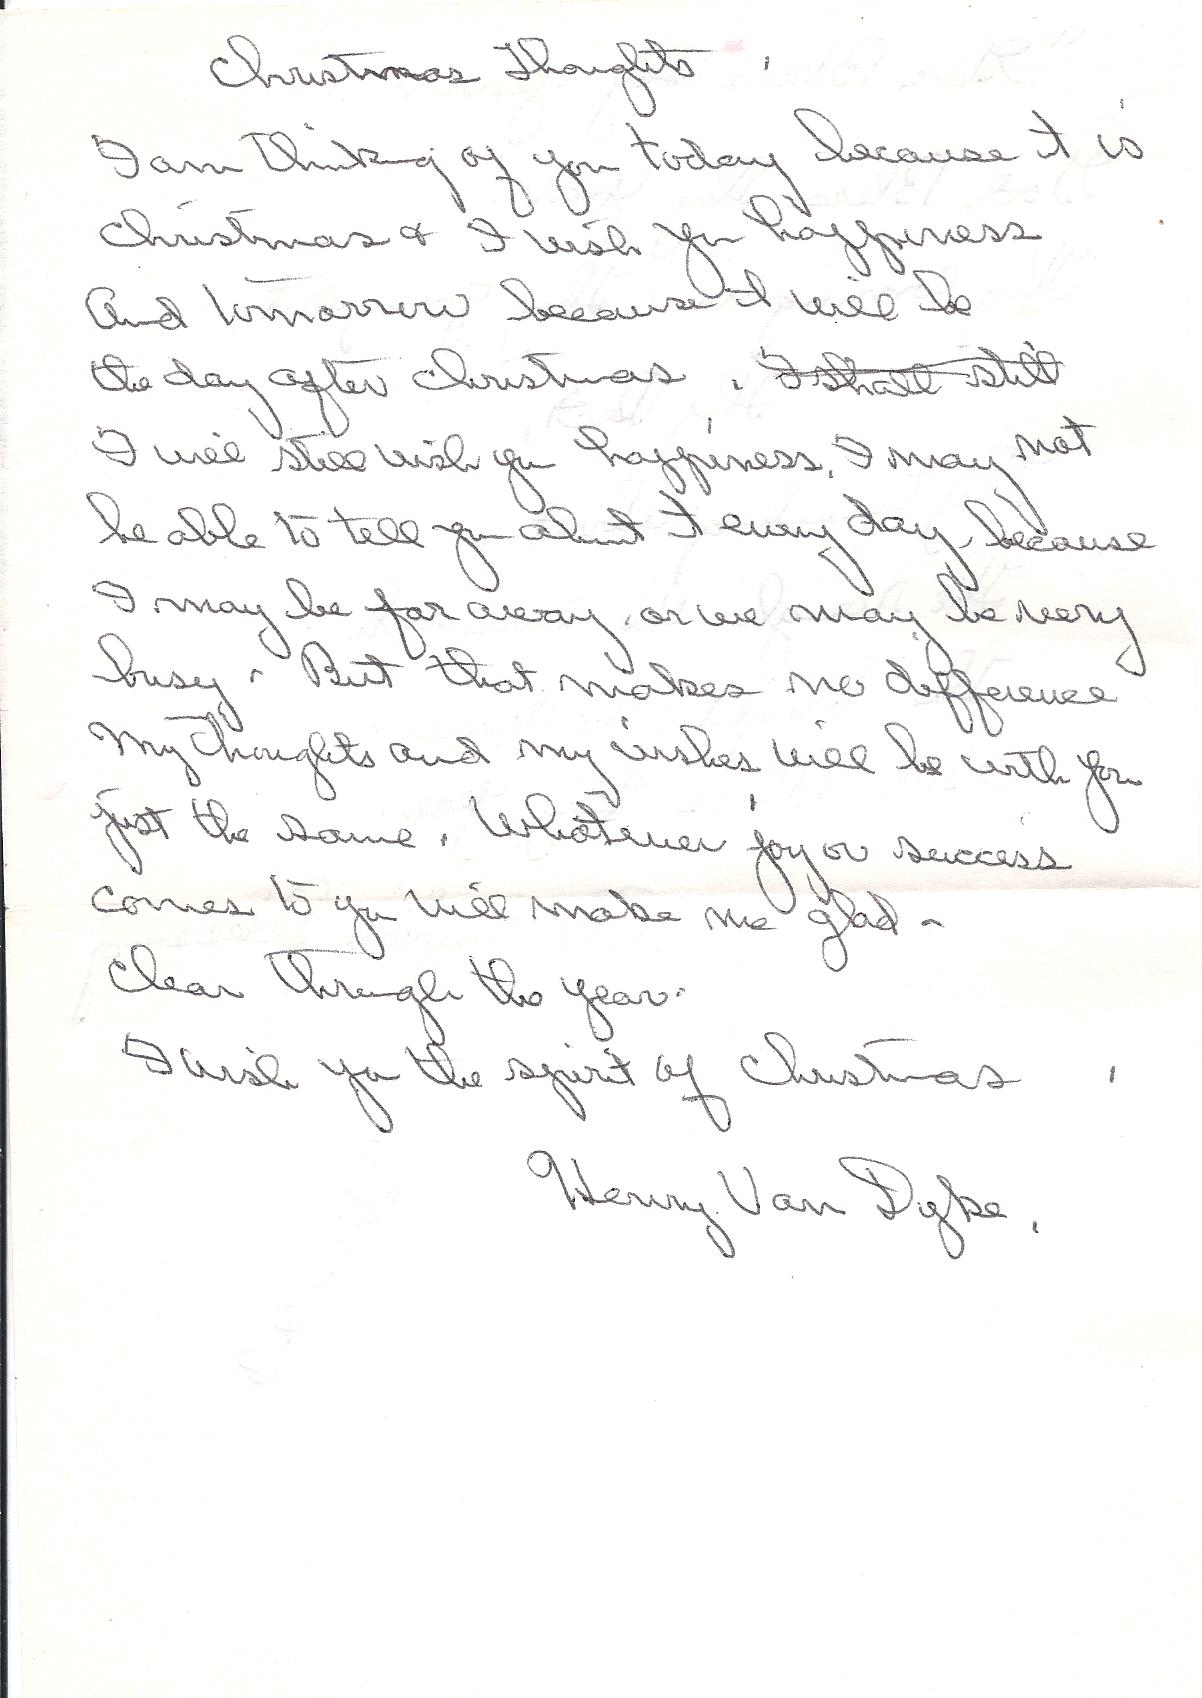 Christmas Thoughts.
I am thinking of you today because it is
Christmas & I wish you happiness
And tomorrow because it will be
the day after Christmas. I shall still
I will still wish you happiness. I may not
be able to tell you about it every day, because
I may be far away, or we may be very
busy. But that makes no difference
My thoughts and my wishes will be with you
just the same. Whatever joy or success
comes to you will make me glad -
Clear through the year.
I wish you the spirit of Christmas.
Henry Van Dyke.